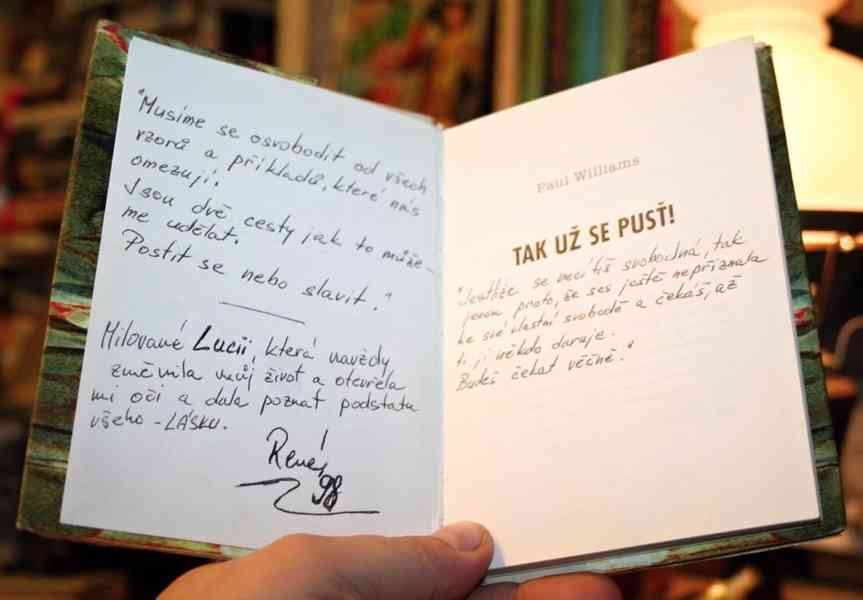 "Musíme se osvobodit od všech
vzorů a příkladů, které nás
omezují.
Jsou dvě cesty jak to může-
me udělat.
Postit se nebo slavit."
Milované Lucii, která navždy
změnila můj život a otevřela
mi oči a dala poznat podstatu
všeho - LÁSKU.
René,
98
Paul Williams
TAK UŽ SE PUSŤ!
"Jestliže se necítíš svobodná, tak
jenom proto, že ses ještě nepřiznala
ke své vlastní svobodě a čekáš, až
ti ji někdo daruje.
Budeš čekat věčně."